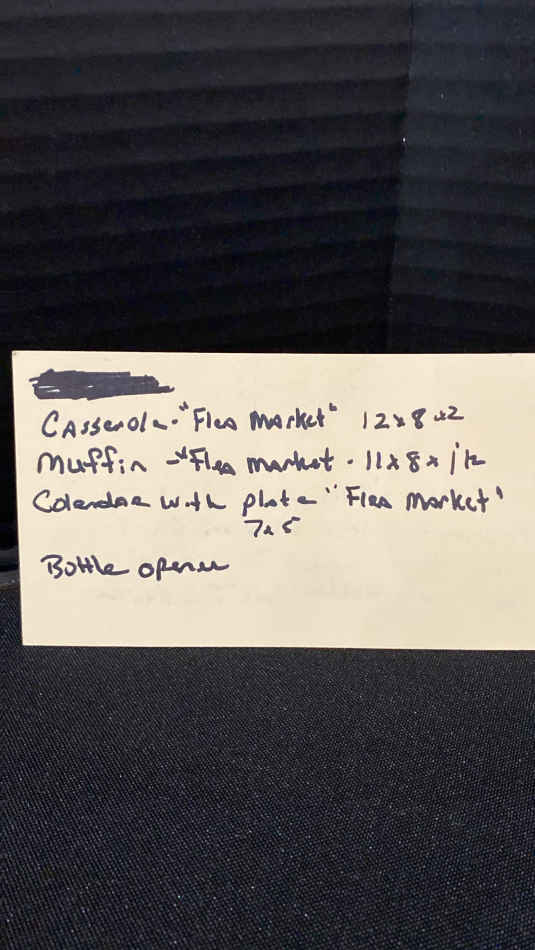 Casserole - "Flea Market" 12x8x2
Muffin - "Flea Market - 11x8x1½
Colendar with plate "Flea Market"
7x5
Bottle opener